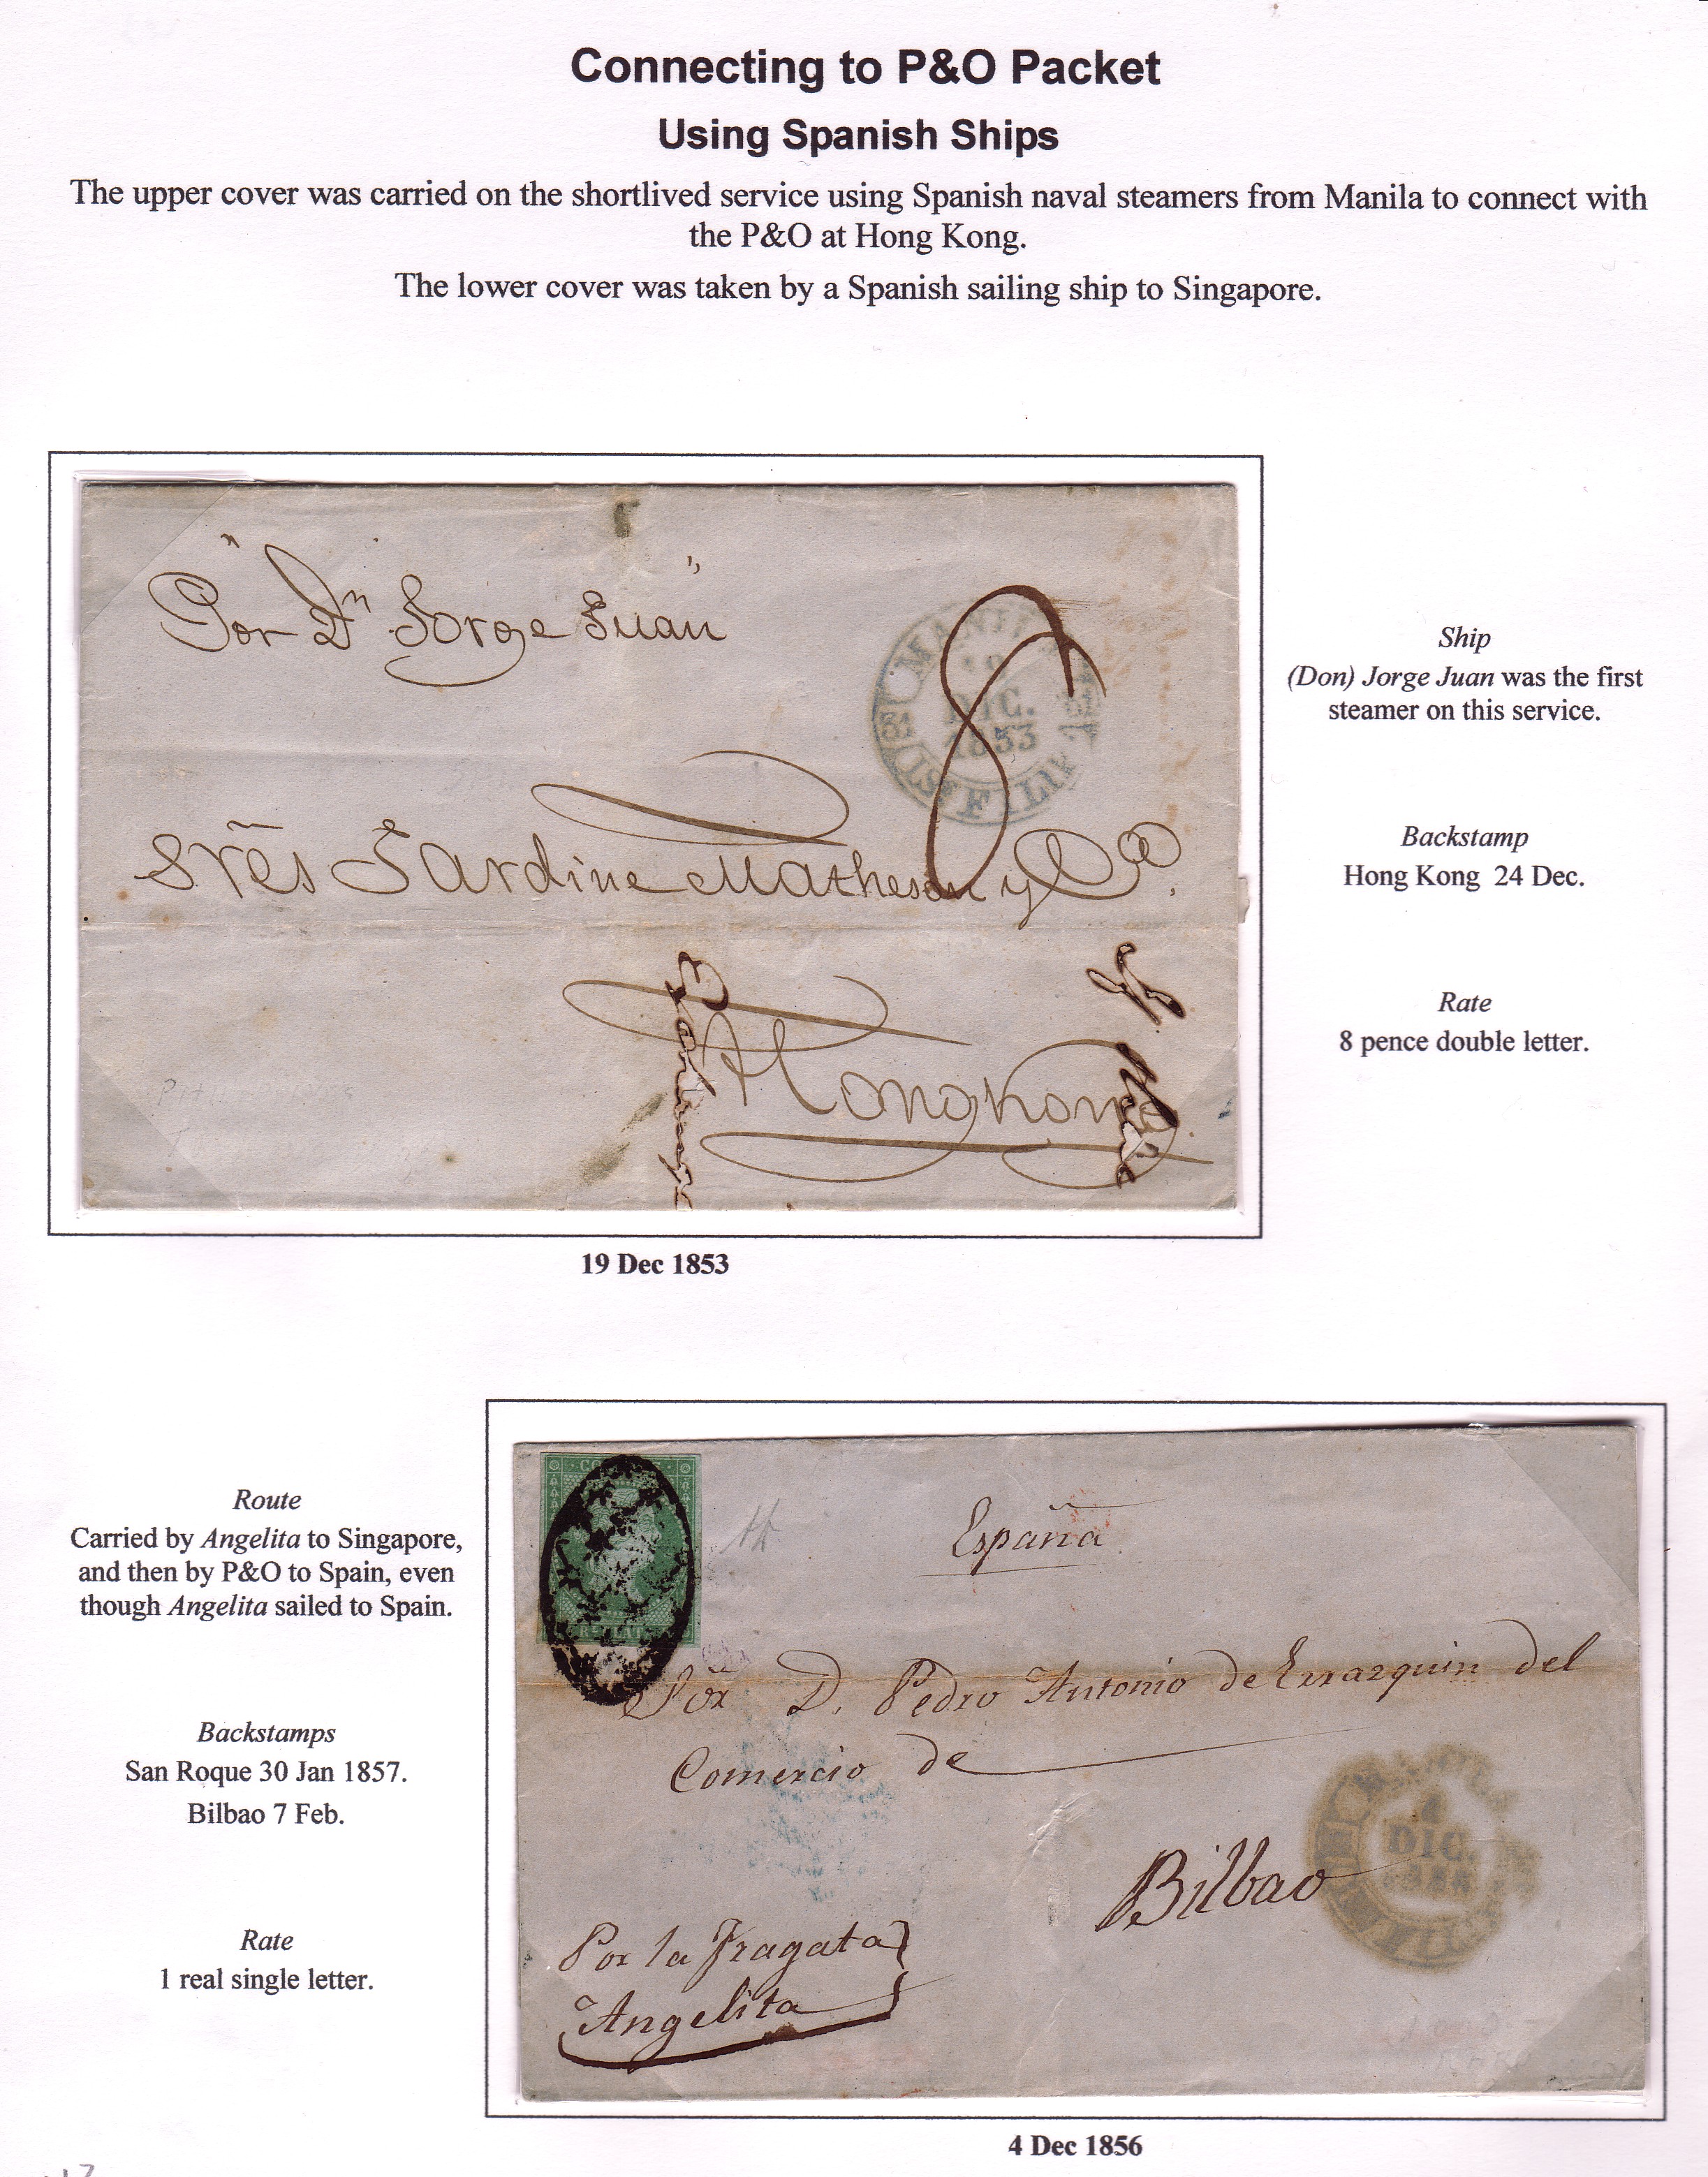 Connecting to P&O Packet
Using Spanish Ships
The upper cover was carried on the shortlived service using Spanish naval steamers from Manila to connect with
the P&O at Hong Kong.
The lower cover was taken by a Spanish sailing ship to Singapore.
"Por Dn Jorge Juan"
8
MANILA
DIC.
1853
ISs FILIP
Sres Jardine Matheson y Co.
Hongkong
Ship
(Don) Jorge Juan was the first
steamer on this service.
Backstamp
Hong Kong 24 Dec.
Rate
8 pence double letter.
19 Dec 1853
Route
Carried by Angelita to Singapore,
and then by P&O to Spain, even
though Angelita sailed to Spain.
Backstamps
San Roque 30 Jan 1857.
Bilbao 7 Feb.
Rate
1 real single letter.
España
Sor D. Pedro Antonio de Errazquin del
Comercio de
Bilbao
4
DIC.
Por la Fragata
Angelita
4 Dec 1856